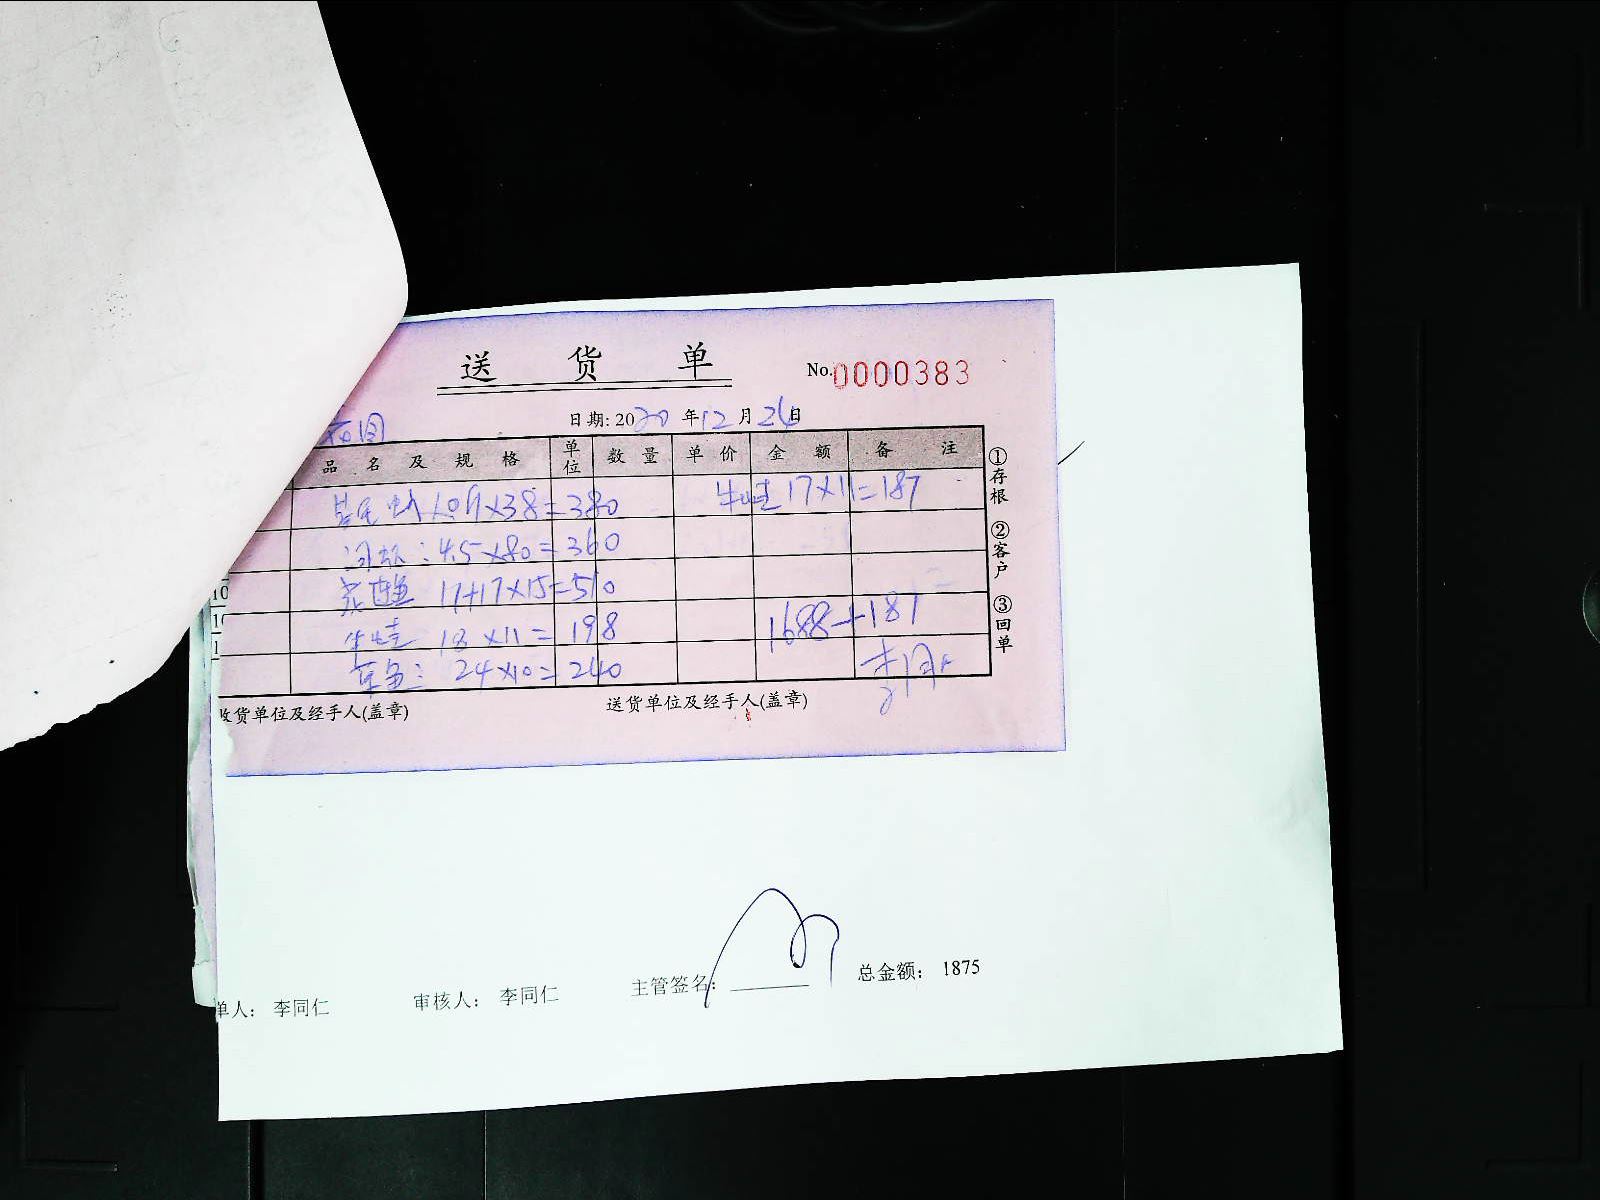 送 货 单
No.0000383
日期: 2020 年 12 月 26 日
品 名 及 规 格 单位 数 量 单 价 金 额 备 注
10斤×38=380 牛蛙 17×11=187
: 4.5×80=360
花鲢鱼 17+17×15=510
牛蛙 18×11= 198
草鱼: 24×10=240
1688+187
①存根 ②客户 ③回单
收货单位及经手人(盖章) 送货单位及经手人(盖章)
10
1
1
单人: 李同仁 审核人: 李同仁 主管签名: 总金额: 1875